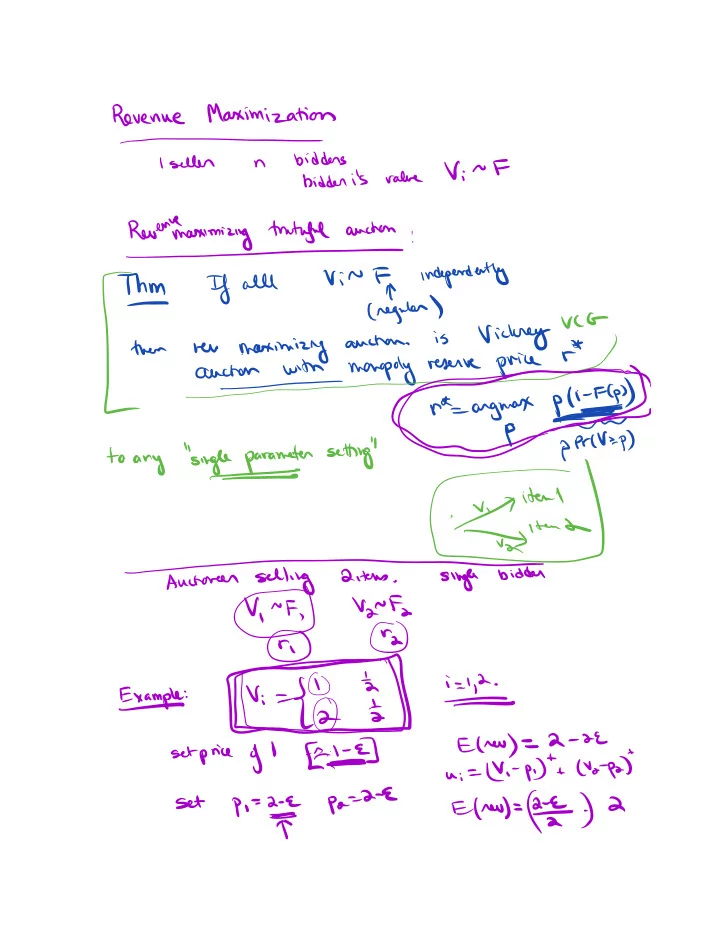 Revenue Maximization
1 seller n bidders
bidder i's value Vi ~ F
Revenue maximizing truthful auction :
Thm If all Vi ~ F independently
(regular)
then rev maximizing auction is Vickrey VCG
auction with monopoly reserve price r*
r* = argmax p(1-F(p))
p
p Pr(V≥p)
to any "single parameter setting"
V1 item 1
V2 item 2
Auctioneer selling 2 items. single bidder
V1 ~ F1 V2 ~ F2
r1 r2
Example: Vi = { 1 1/2 i=1,2.
2 1/2
set price of 1 [≈ 1-ε] E(rev) = 2-2ε
ui = (V1-p1)+ + (V2-p2)+
set p1 = 2-ε p2 = 2-ε E(rev) = (2-ε/2 .) 2
↑